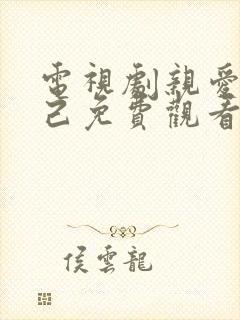 電視劇親愛
己免費觀看
侯雲龍